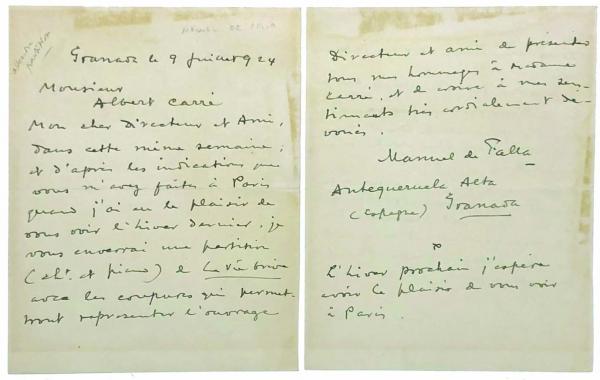 MANUEL DE FALLA
Granada le 9 Juillet 924
Monsieur
Albert Carré
Mon cher Directeur et Ami,
dans cette même semaine,
et d'après les indications que
vous m'avez faites à Paris
quand j'ai eu le plaisir de
vous voir l'hiver dernier, je
vous enverrai une partition
(cht. et piano) de La Vie brève
avec les coupures qui permet-
tront représenter l'ouvrage
Directeur et ami de présenter
tous mes hommages à Madame
Carré, et de croire à mes sen-
timents très cordialement dé-
voués.
Manuel de Falla
Antequeruela Alta
(Espagne) Granada
L'hiver prochain j'espère
avoir le plaisir de vous voir
à Paris.